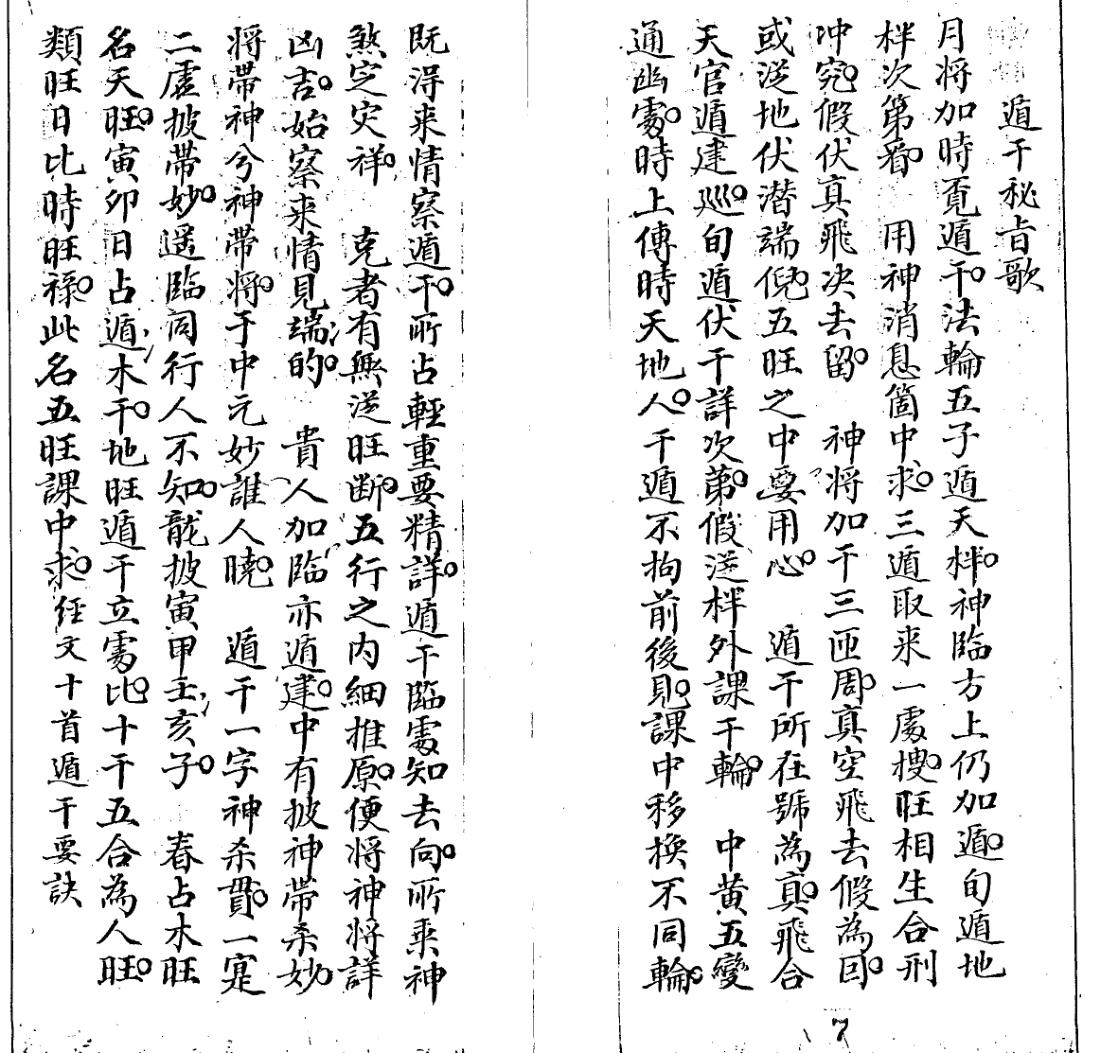 遁干秘旨歌
月将加時覓遁干法輪五子遁天柈神臨方上仍加遁旬遁地
柈次第看 用神消息箇中求三遁取来一處搜旺相生合刑
冲究假伏真飛决去留 神将加干三匝周真空飛去假為囙
或迯地伏潜端倪五旺之中要用心 遁干所在號為真飛合
天官遁建廵旬遁伏干詳次第假迯柈外課干輪 中黄五變
通幽䖏時上傳時天地人干遁不拘前後見課中移換不同輪
既淂来情察遁干所占輕重要精詳遁干臨䖏知去向所乘神
煞定灾祥 克者有無迯旺断五行之内細推原便将神将詳
凶吉始察来情見端的 貴人加臨亦遁建中有披神帶杀妙
将帶神兮神帶将于中元妙誰人曉 遁干一字神杀貫一寔
二虛披帶妙遥臨同行人不知龍披寅甲壬亥子 春占木旺
名天旺寅卯日占遁木干地旺遁干立䖏比十干五合為人旺
類旺日比時旺祿此名五旺課中求経文十首遁干要訣
7